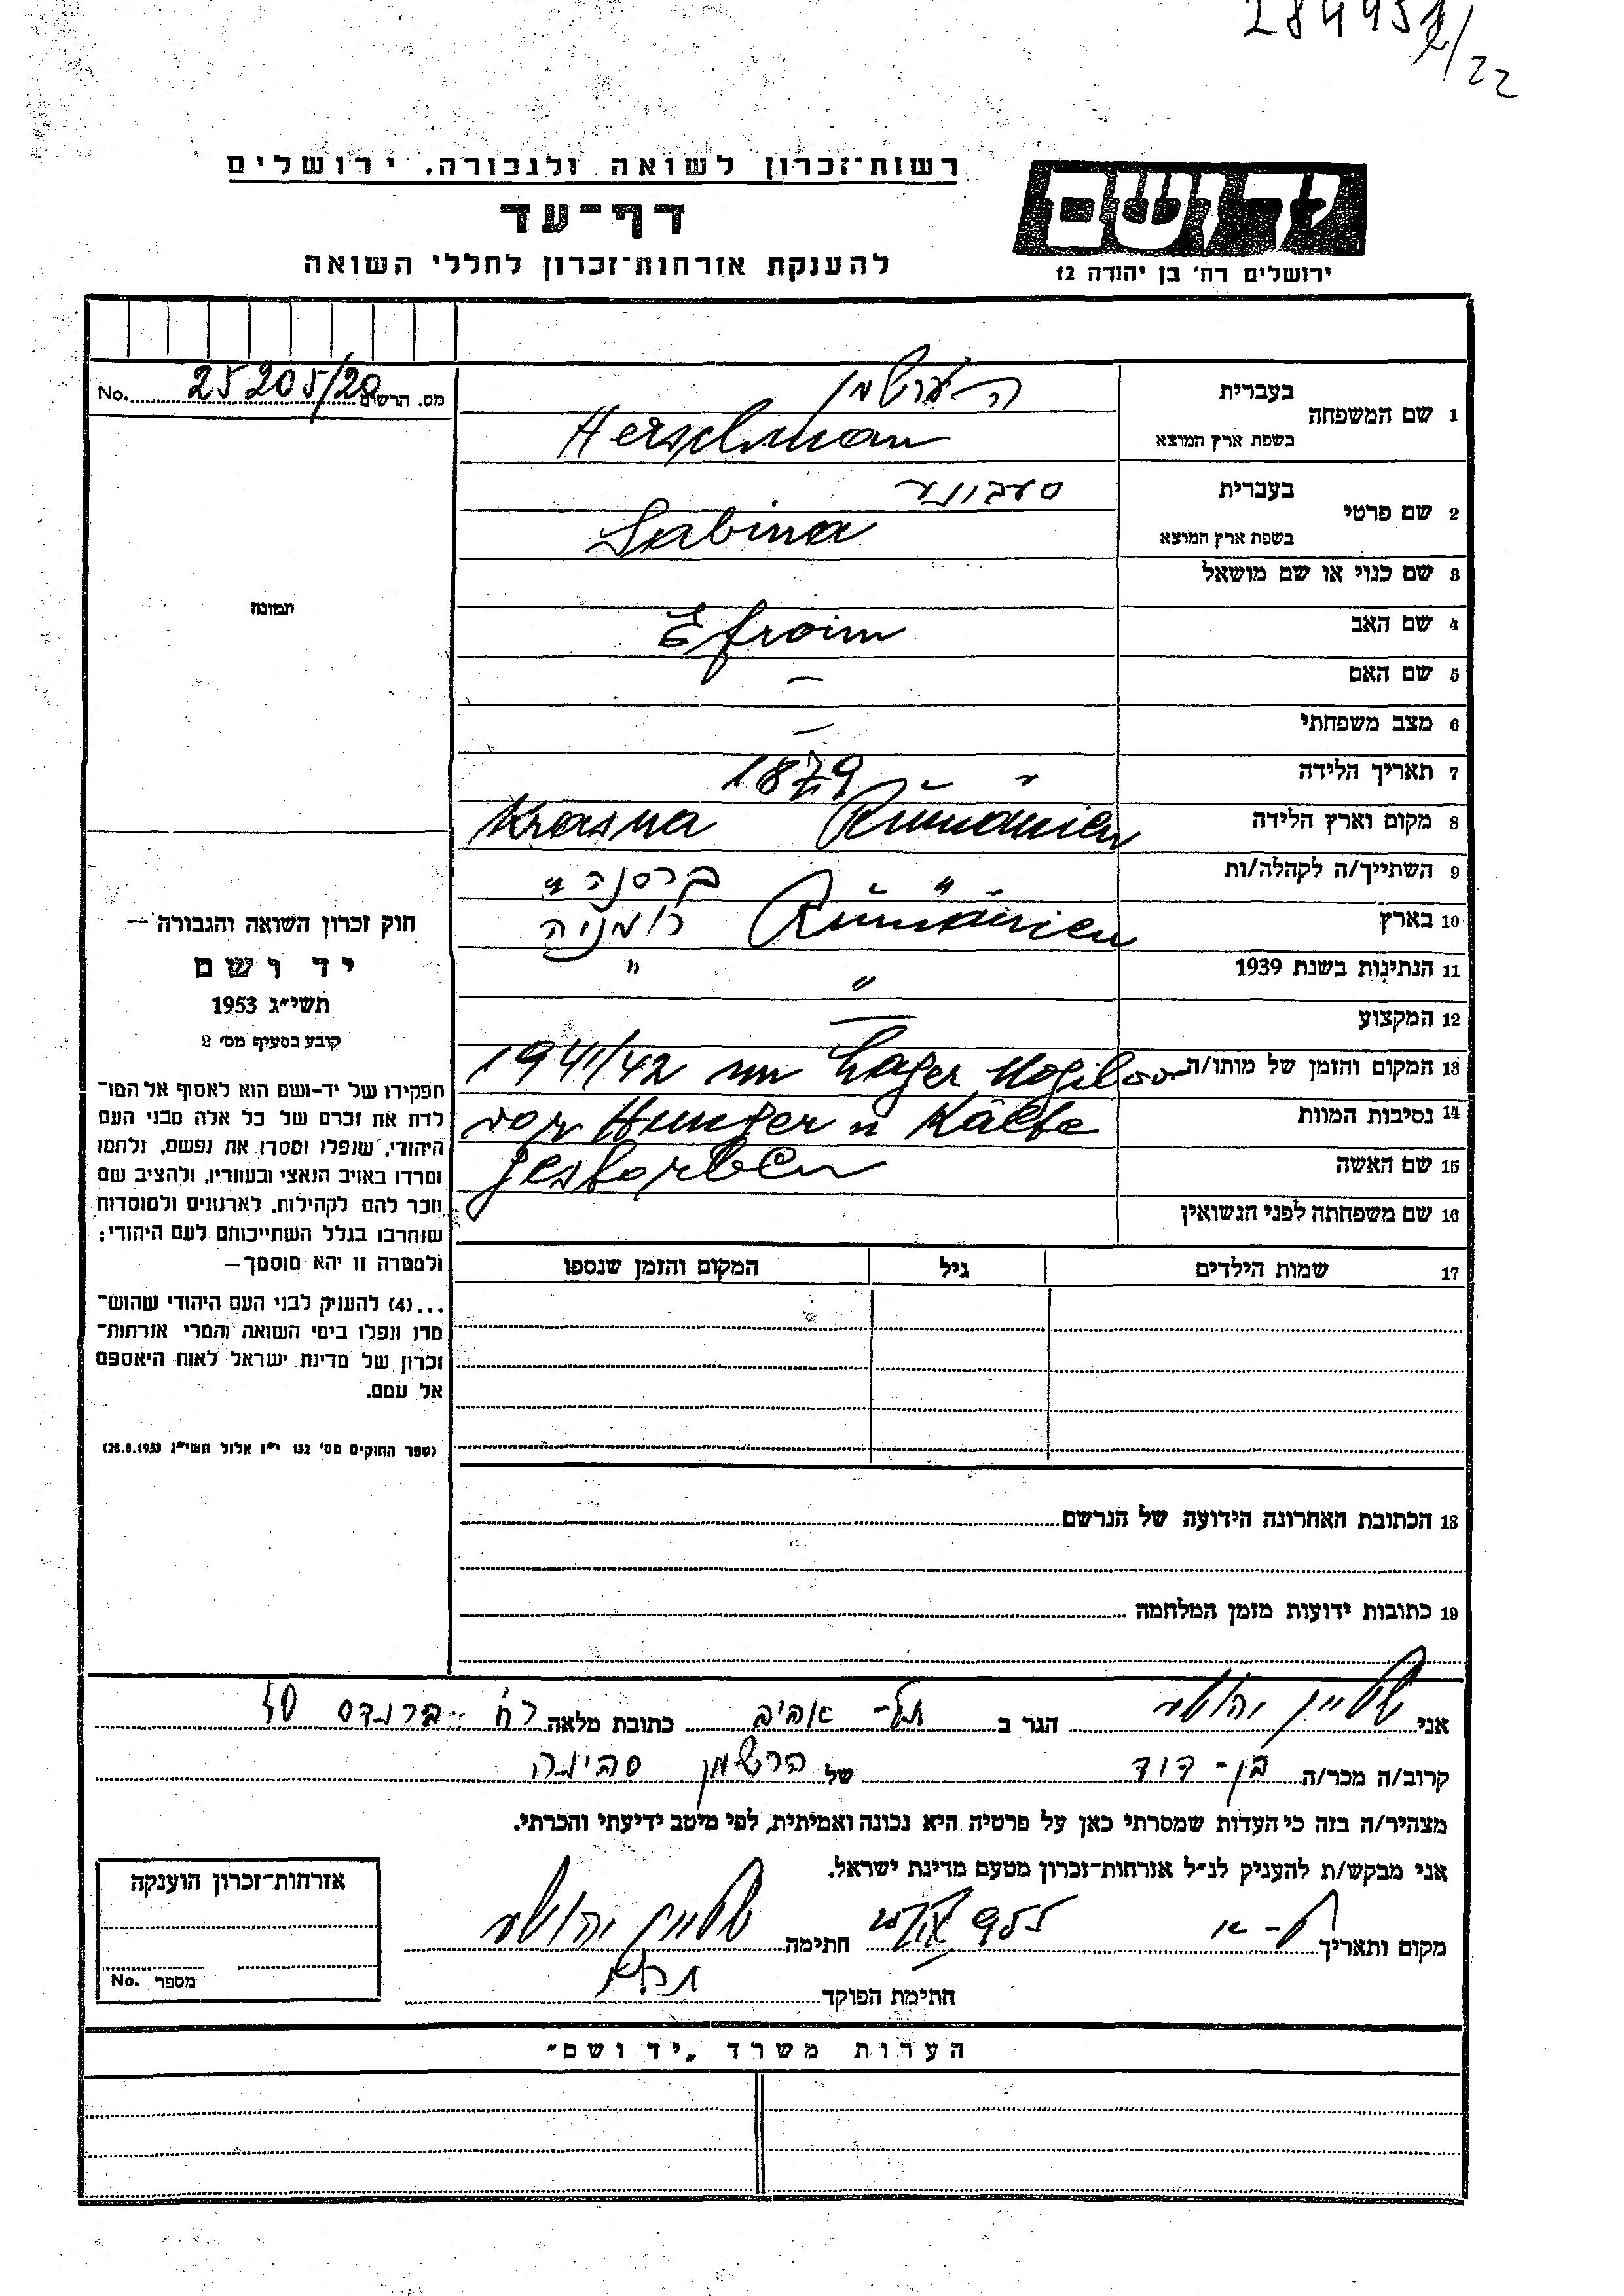 284451/22
רשות־זכרון לשואה ולגבורה, ירושלים
דף־עד
להענקת אזרחות־זכרון לחללי השואה
יד ושם
ירושלים רח׳ בן יהודה 12
No. 25205/20 מס. הרשום
1 שם המשפחה
בעברית הערשמן
בשפת ארץ המוצא Herschman
2 שם פרטי
בעברית
בשפת ארץ המוצא Sabina
3 שם כנוי או שם מושאל
4 שם האב Efroim
5 שם האם —
6 מצב משפחתי —
7 תאריך הלידה 1879
8 מקום וארץ הלידה Krasna Rumänien
9 השתייך/ה לקהלה/ות " "
10 בארץ רומניה Rumänien
11 הנתינות בשנת 1939 " "
12 המקצוע —
13 המקום והזמן של מותו/ה 1941/42 im Lager Mogilow
14 נסיבות המוות vor Hunger u Kälte
15 שם האשה gestorben
16 שם משפחתה לפני הנשואין
17 שמות הילדים גיל המקום והזמן שנספו
תמונה
חוק זכרון השואה והגבורה —
יד ושם
תשי״ג 1953
קובע בסעיף מס׳ 2
תפקידו של יד-ושם הוא לאסוף אל המו־
לדת את זכרם של כל אלה מבני העם
היהודי, שנפלו ומסרו את נפשם, נלחמו
ומרדו באויב הנאצי ובעוזריו, ולהציב שם
וזכר להם לקהילות, לארגונים ולמוסדות
שנחרבו בגלל השתייכותם לעם היהודי;
ולמטרה זו יהא מוסמך—
...(4) להעניק לבני העם היהודי שהוש־
מדו ונפלו בימי השואה והמרי אזרחות־
זכרון של מדינת ישראל לאות היאספם
אל עמם.
(ספר החוקים מס׳ 132 י״ז אלול תשי״ג 28.8.1953)
18 הכתובת האחרונה הידועה של הנרשם
19 כתובות ידועות מזמן המלחמה
אני שטיין יהושע הגר ב תל-אביב כתובת מלאה רח׳ ברנדס 40
קרוב/ה מכר/ה בן-דוד של הרשמן סבינה
מצהיר/ה בזה כי העדות שמסרתי כאן על פרטיה היא נכונה ואמיתית, לפי מיטב ידיעתי והכרתי.
אני מבקש/ת להעניק לנ״ל אזרחות-זכרון מטעם מדינת ישראל.
מקום ותאריך ת-א 955 חתימה שטיין יהושע
חתימת הפוקד
אזרחות־זכרון הוענקה
No. מספר
הערות משרד „יד ושם״